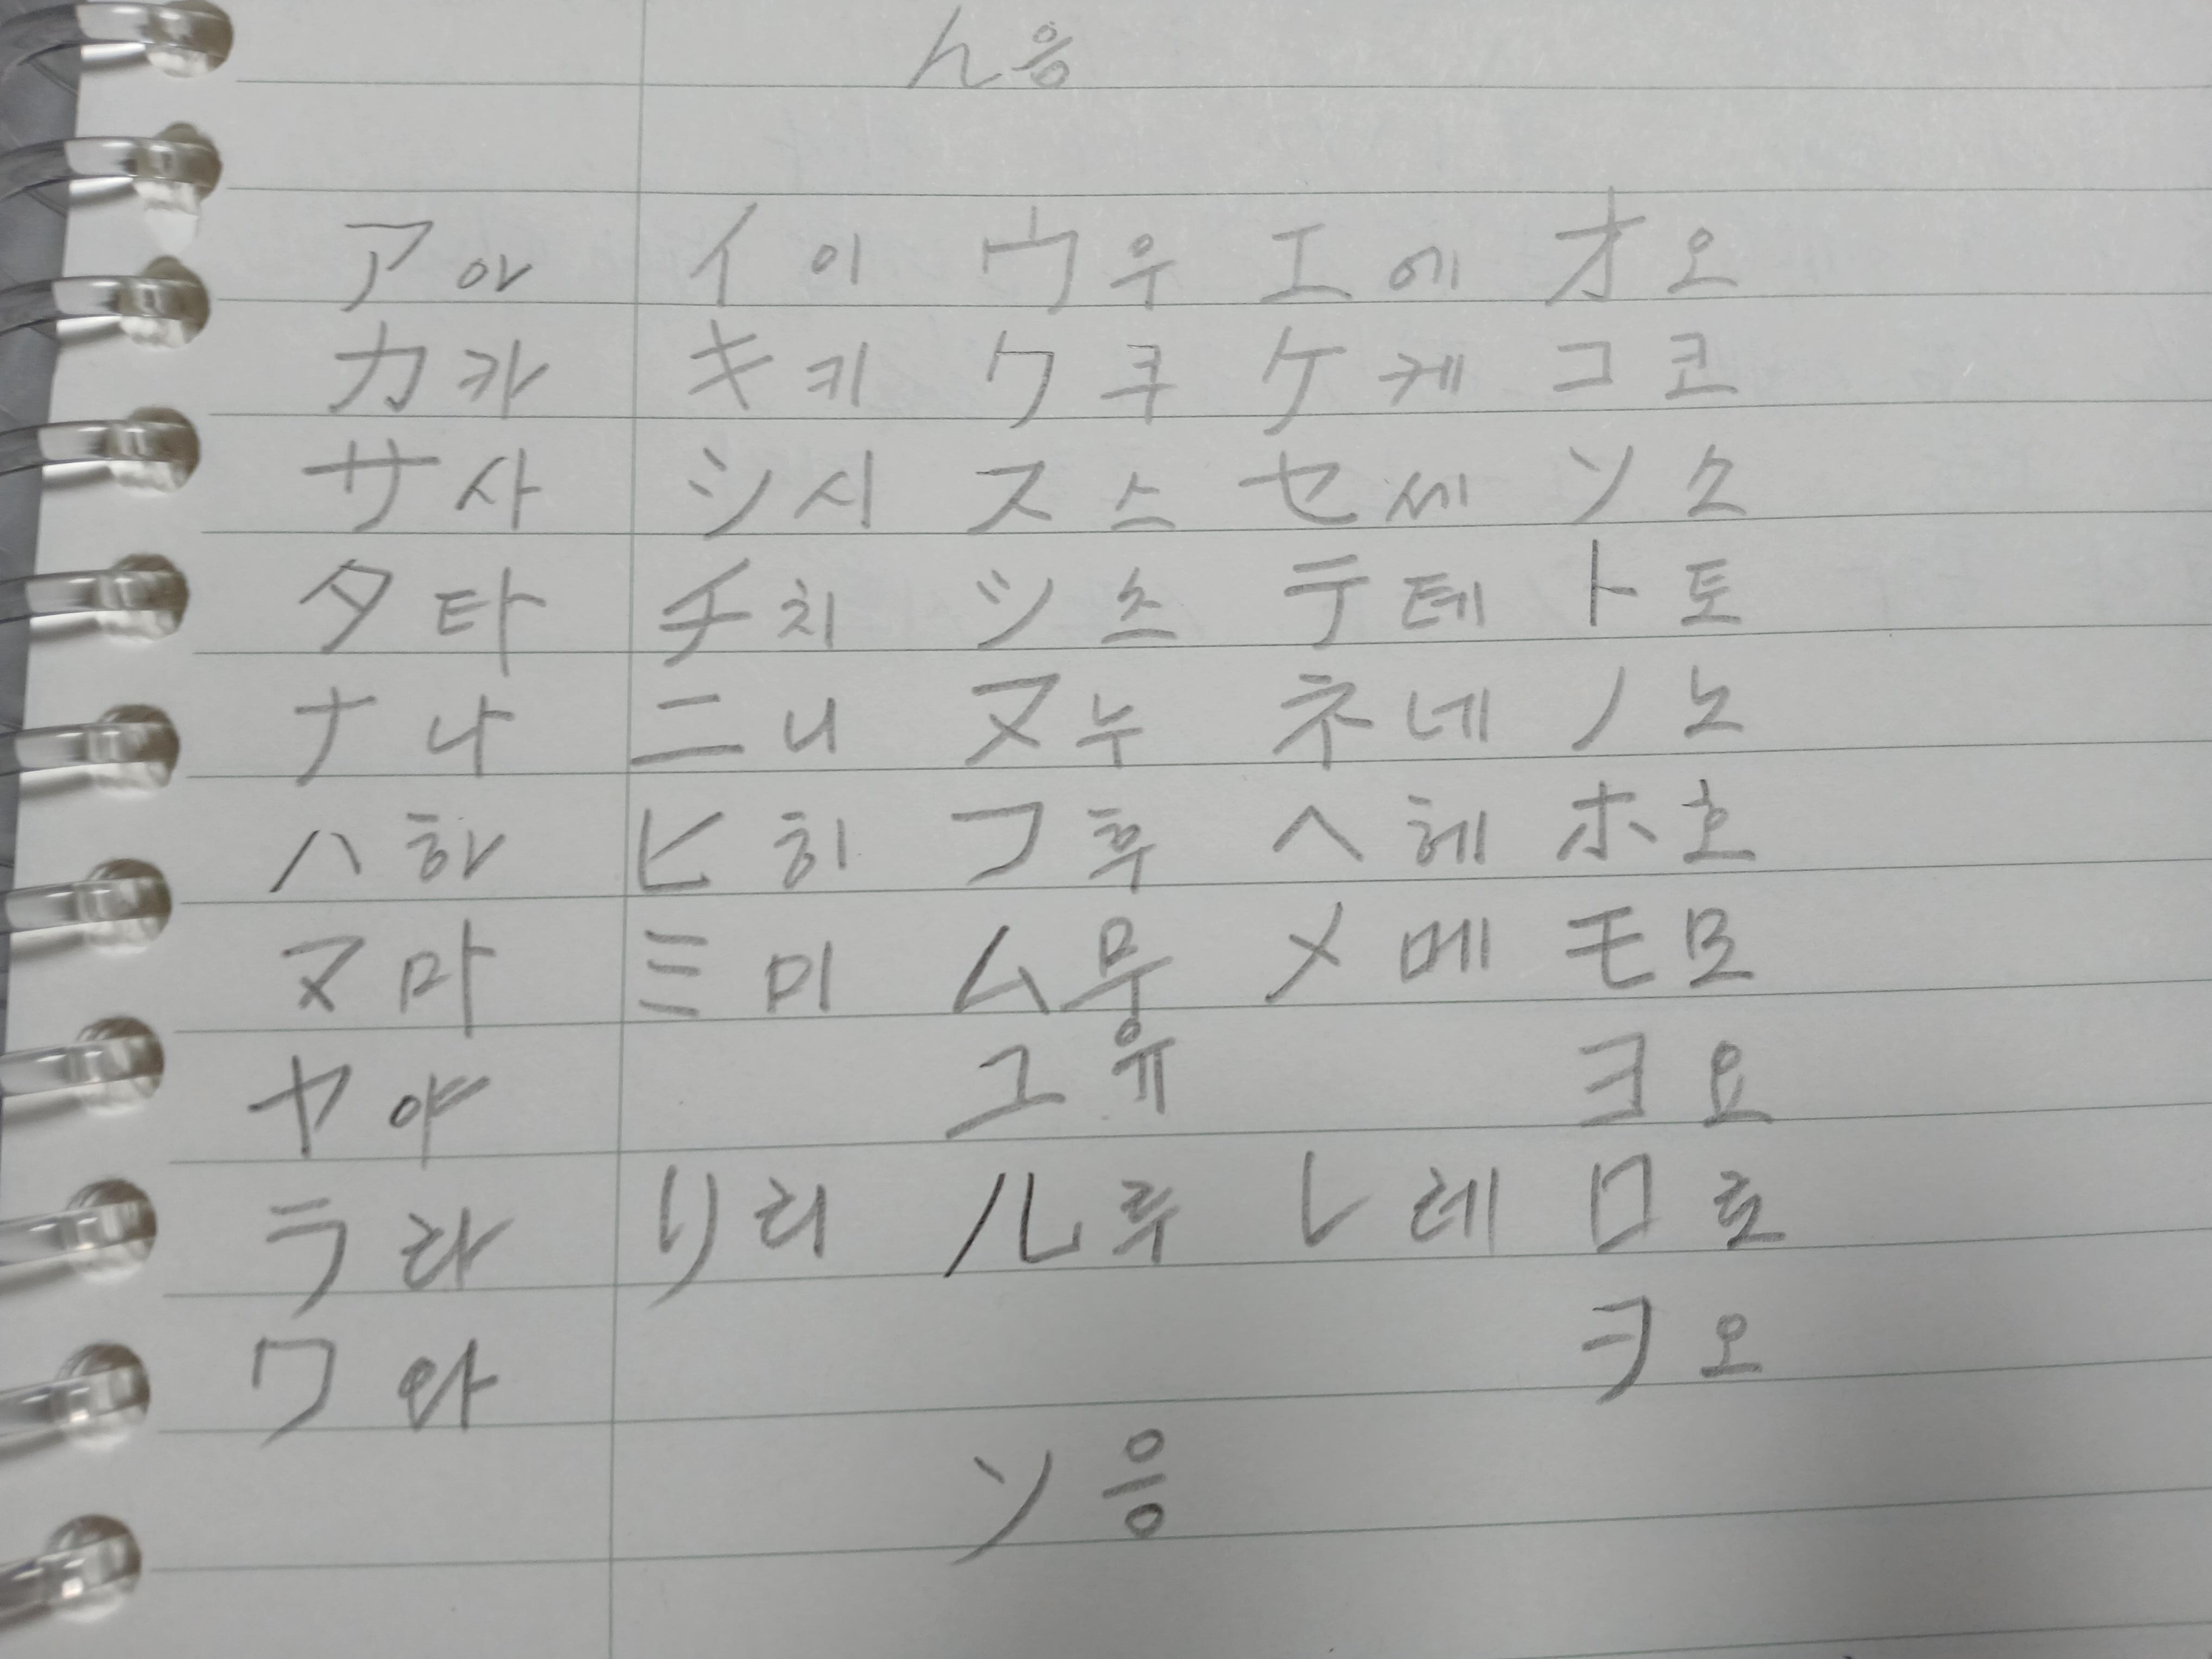 ん 응
ア 아 イ 이 ウ 우 エ 에 オ 오
カ 카 キ 키 ク 쿠 ケ 케 コ 코
サ 사 シ 시 ス 스 セ 세 ソ 소
タ 타 チ 치 ツ 츠 テ 테 ト 토
ナ 나 ニ 니 ヌ 누 ネ 네 ノ 노
ハ 하 ヒ 히 フ 후 ヘ 헤 ホ 호
ヌ 마 ミ 미 ム 무 メ 메 モ 모
ヤ 야 ユ 유 ヨ 요
ラ 라 リ 리 ル 루 レ 레 ロ 로
ワ 와 ヲ 오
ン 응